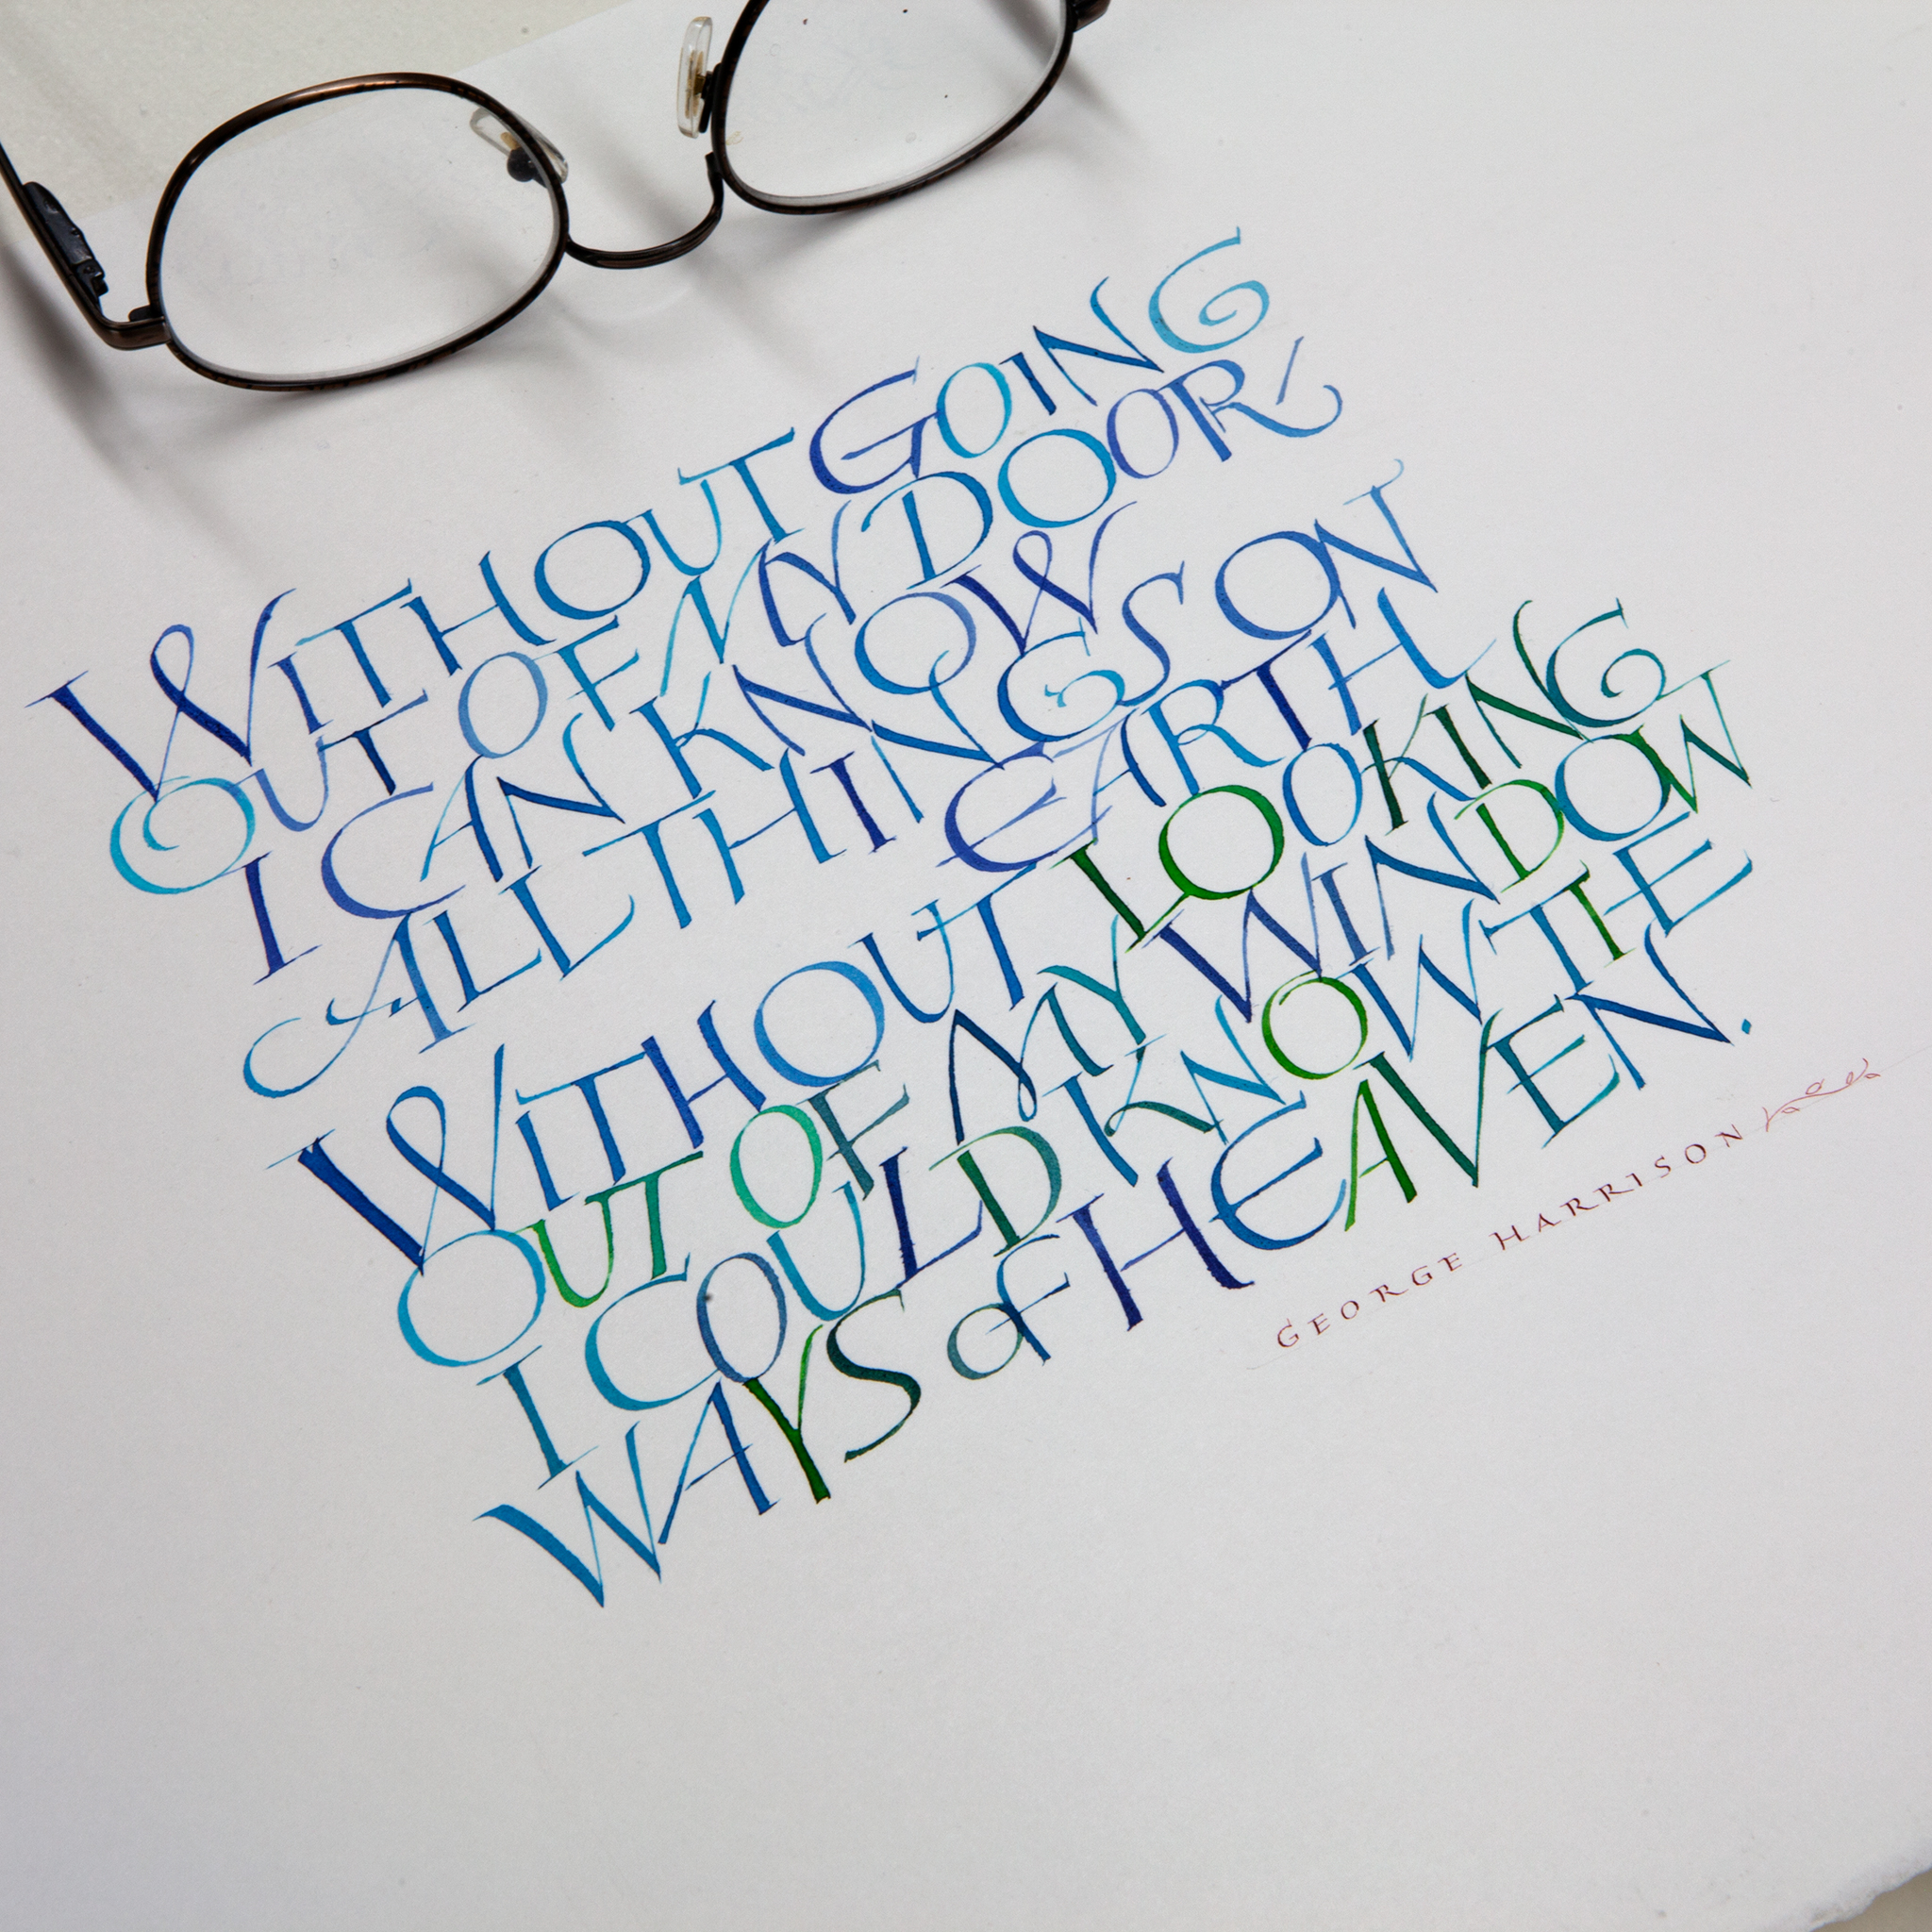 WITHOUT GOING
OUT OF MY DOOR,
I CAN KNOW
ALL THINGS ON
EARTH
WITHOUT LOOKING
OUT OF MY WINDOW
I COULD KNOW THE
WAYS OF HEAVEN.
GEORGE HARRISON